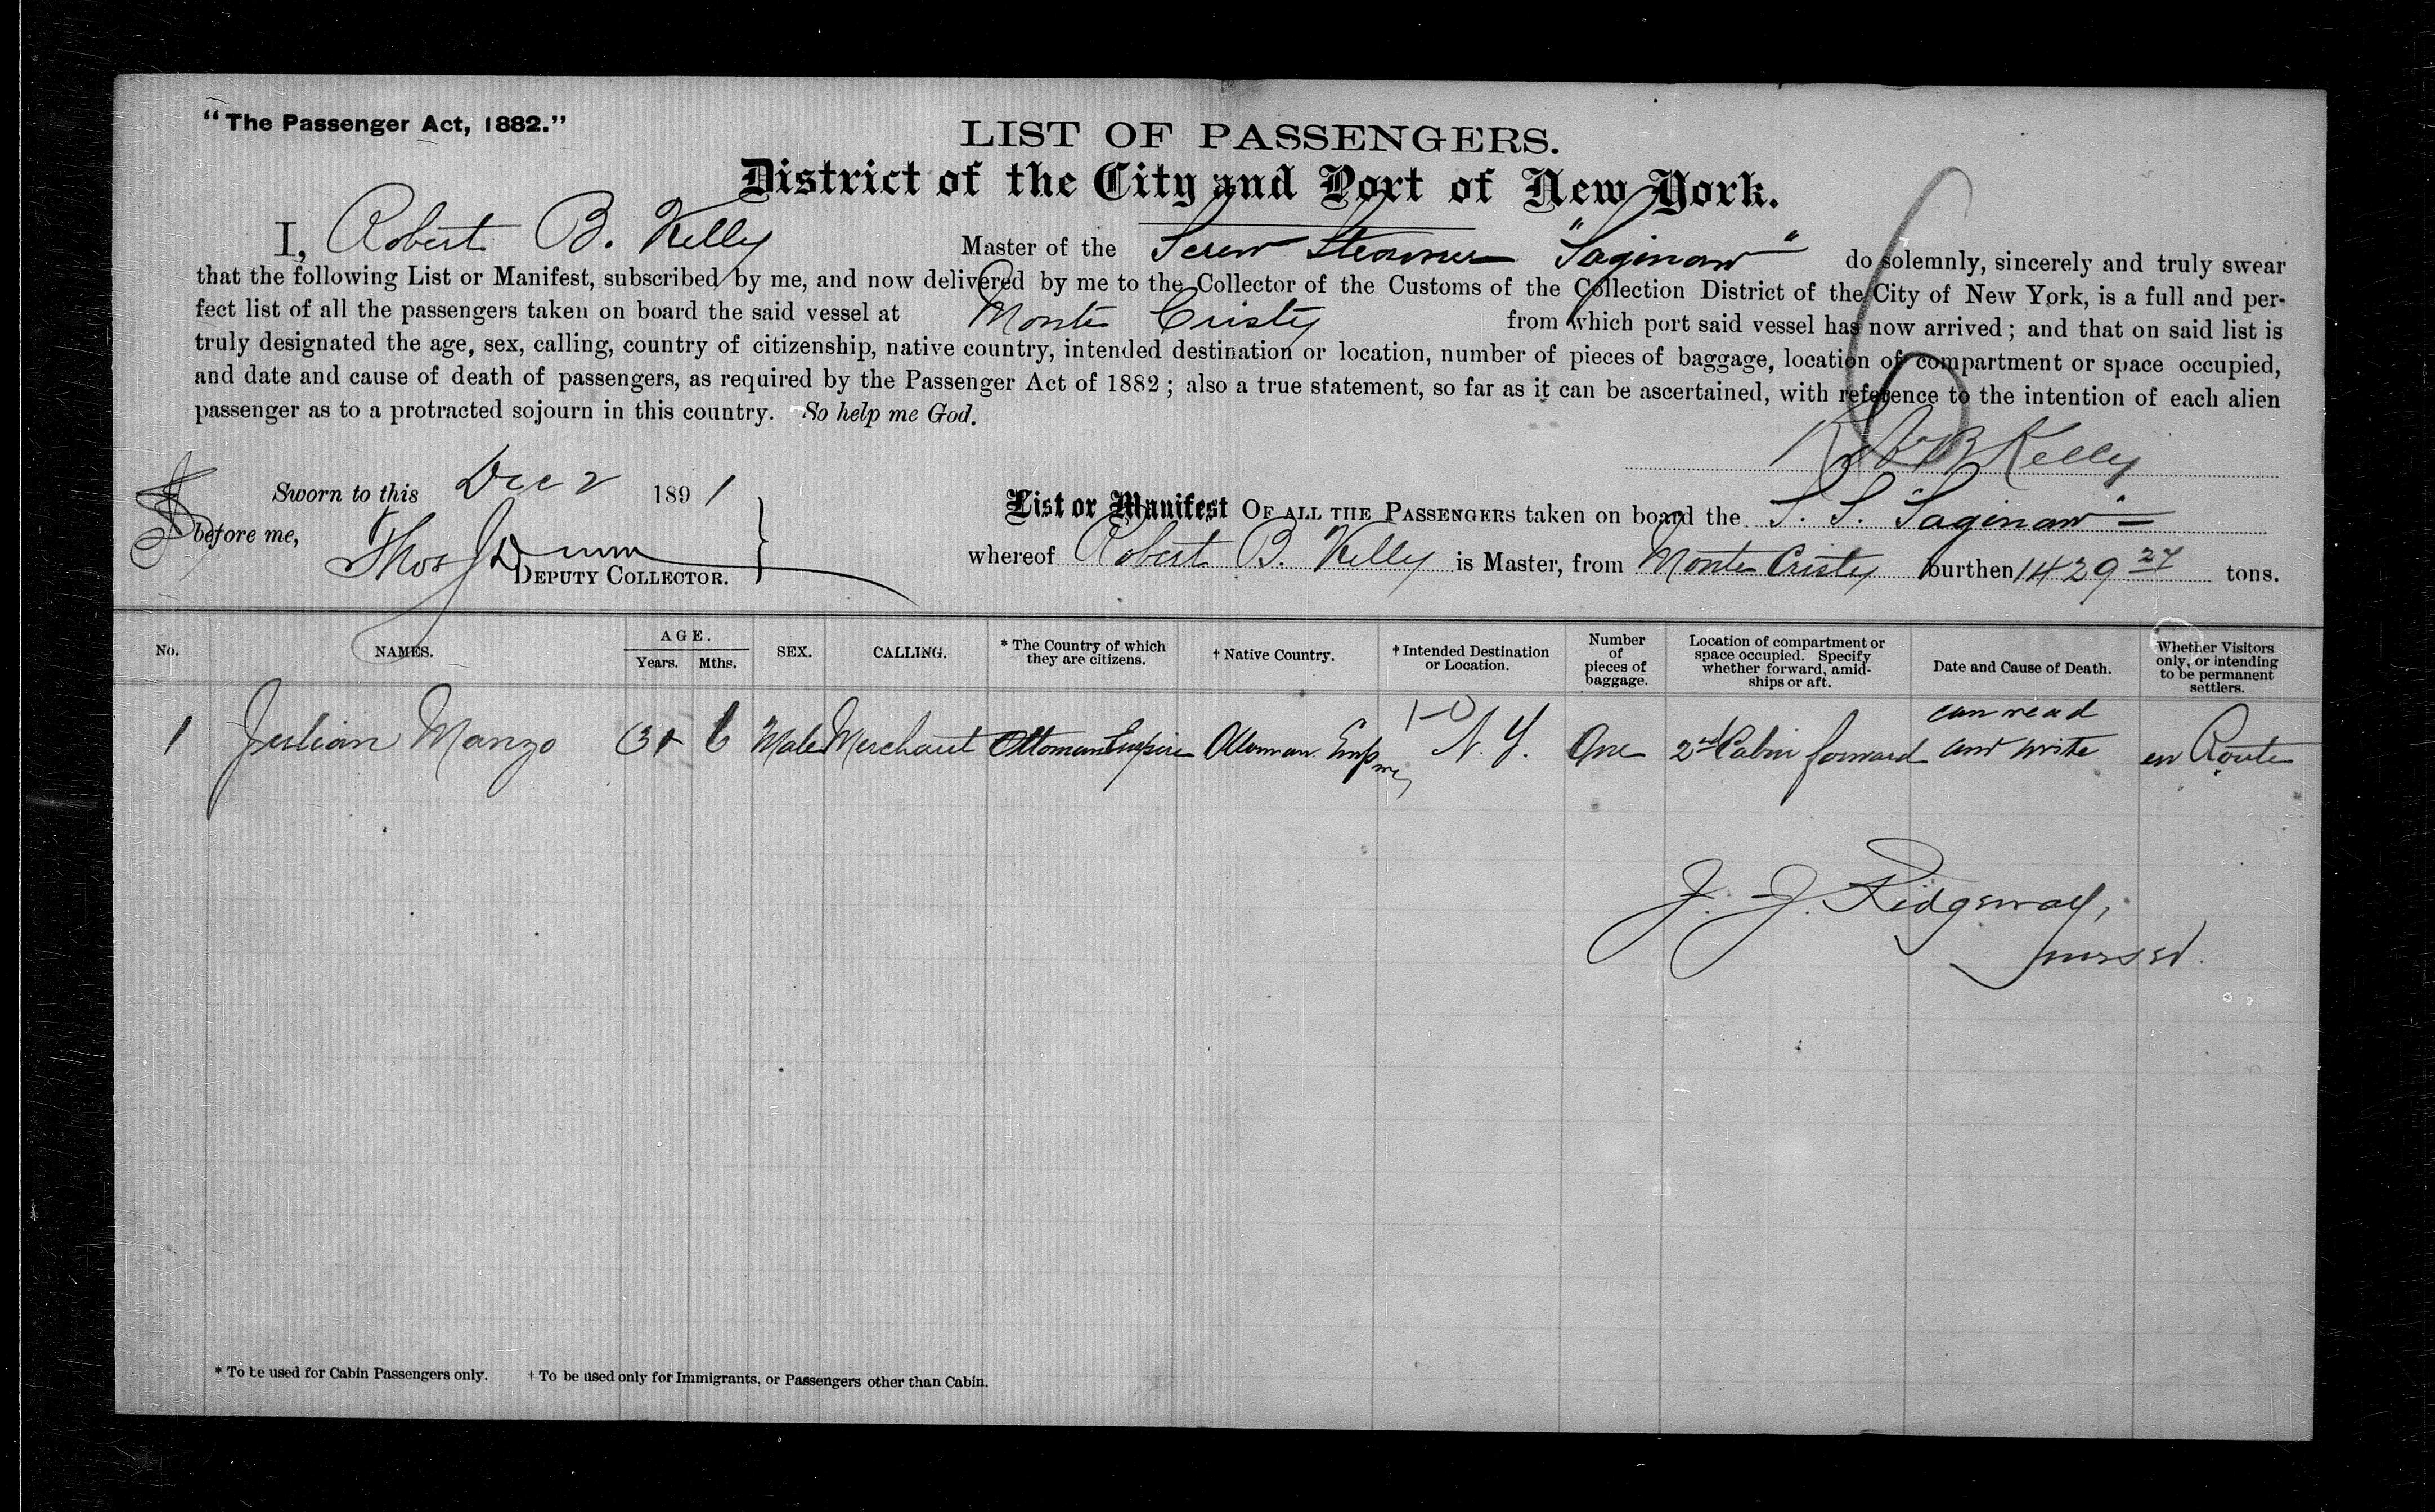 "The Passenger Act, 1882."
LIST OF PASSENGERS.
District of the City and Port of New York.
I, Robert B. Kelly Master of the Screw Steamer "Saginaw" do solemnly, sincerely and truly swear
that the following List or Manifest, subscribed by me, and now delivered by me to the Collector of the Customs of the Collection District of the City of New York, is a full and per-
fect list of all the passengers taken on board the said vessel at Monte Cristy from which port said vessel has now arrived; and that on said list is
truly designated the age, sex, calling, country of citizenship, native country, intended destination or location, number of pieces of baggage, location of compartment or space occupied,
and date and cause of death of passengers, as required by the Passenger Act of 1882; also a true statement, so far as it can be ascertained, with reference to the intention of each alien
passenger as to a protracted sojourn in this country. So help me God.
Kelly
Sworn to this Dec 2 1891
before me,
Thos J Dunn
DEPUTY COLLECTOR.
List or Manifest OF ALL THE PASSENGERS taken on board the S. S. "Saginaw"
whereof Robert B. Kelly is Master, from Monte Cristy burthen 1429 27 tons.
No. NAMES. AGE. Years. Mths. SEX. CALLING. * The Country of which they are citizens. † Native Country. † Intended Destination or Location. Number of pieces of baggage. Location of compartment or space occupied. Specify whether forward, amid-ships or aft. Date and Cause of Death. Whether Visitors only, or intending to be permanent settlers.
1 Julian Manzo 6 Male Merchant Ottoman Empire Ottoman Empire N. Y. One 2nd Cabin forward can read and write en Route
J. J. Ridgeway,
purser.
* To be used for Cabin Passengers only. † To be used only for Immigrants, or Passengers other than Cabin.